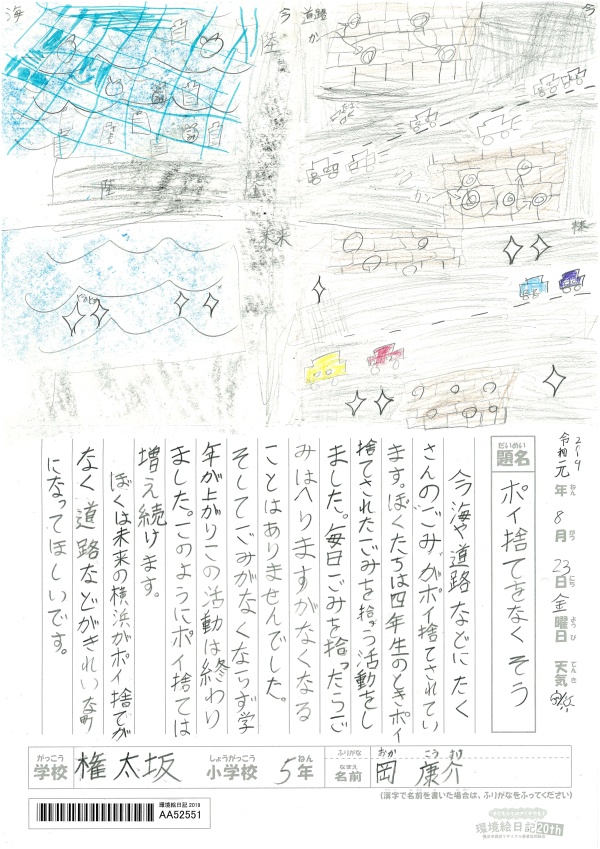 海
今
陸
陸
未来
道路
今
未来
2019
令和元年8月23日金曜日 天気
ねん
がつ
にち
ようび
てんき
だいめい
題名
ポイ捨てをなくそう
今海や道路などにたく
さんのごみがポイ捨てされてい
ます。ぼくたちは四年生のときポイ
捨てされたごみを拾う活動をし
ました。毎日ごみを拾ったらご
みはへりますがなくなる
ことはありませんでした。
そしてごみがなくならず学
年が上がりこの活動は終わり
ました。このようにポイ捨ては
増え続けます。
ぼくは未来の横浜がポイ捨てが
なく道路などがきれいな町
になってほしいです。
がっこう しょうがっこう ねん ふりがな おか こうすけ
学校 権太坂 小学校 5年 なまえ 名前 岡 康介
(漢字で名前を書いた場合は、ふりがなをふってください)
環境絵日記 2019
AA52551
環境絵日記20th